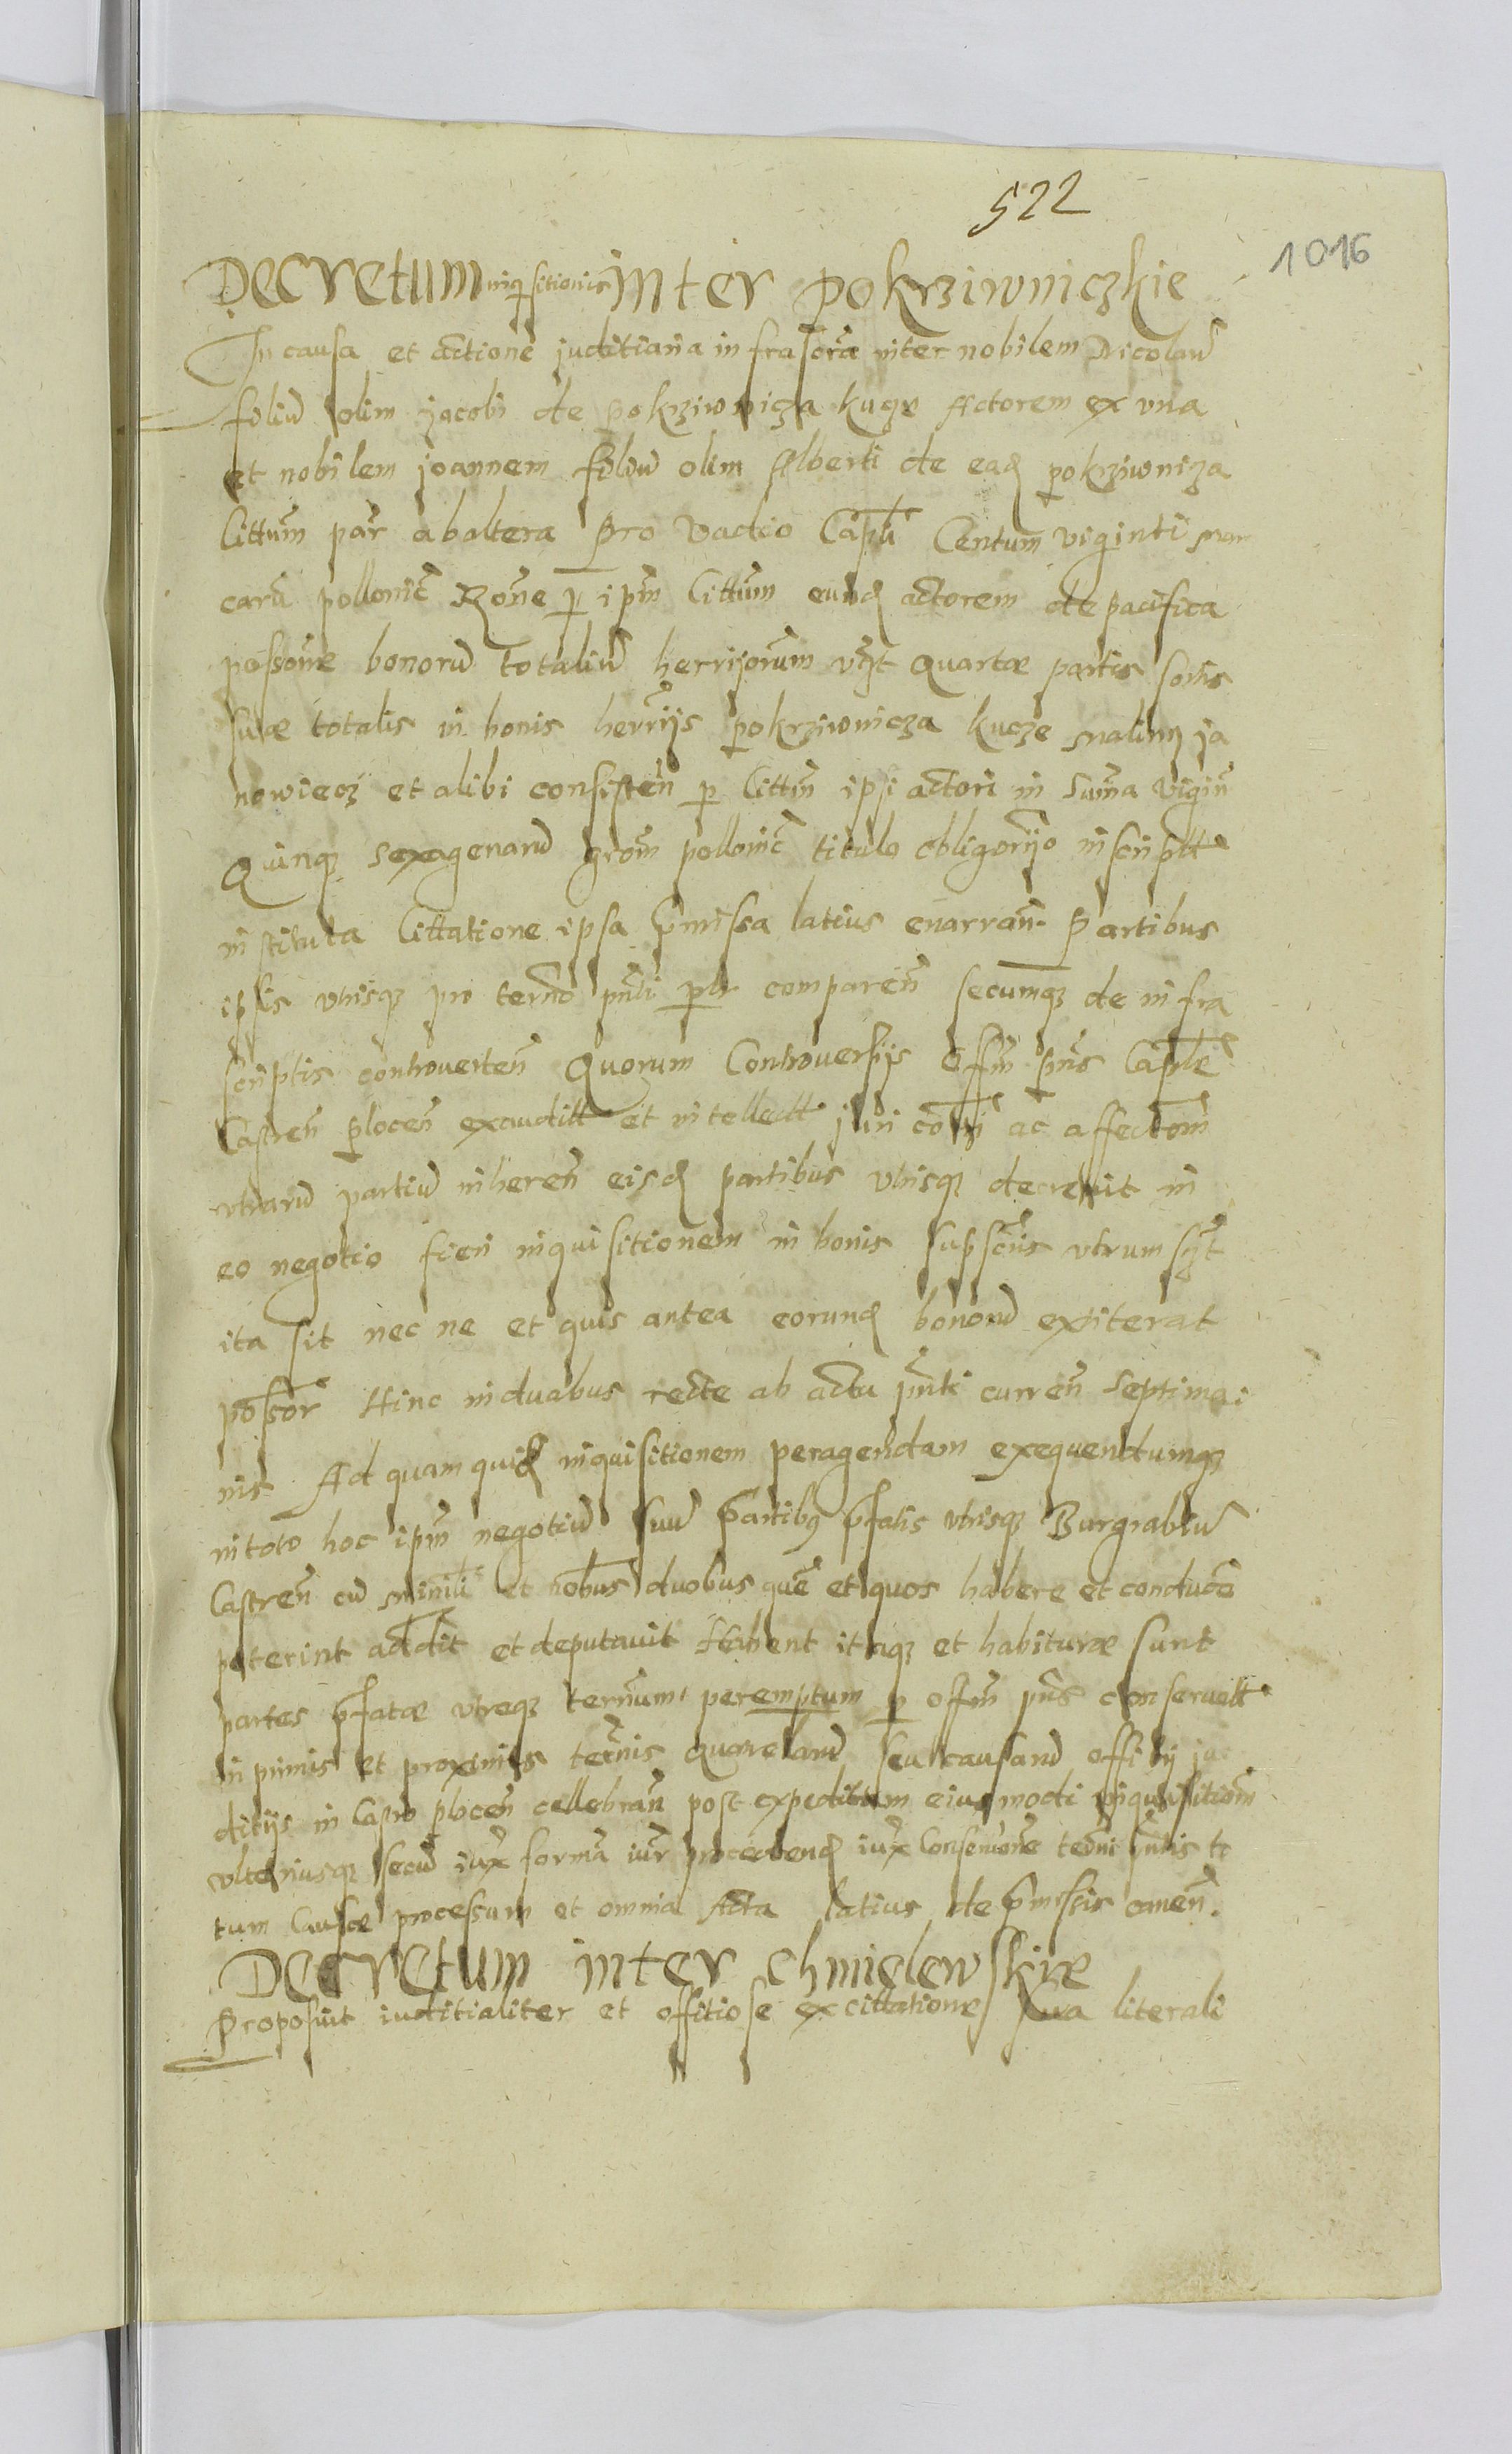 522
1016
Decretum inq̃sitionis inter pokrziwniczkie
In causa et actione juditiaria infrascrĩa inter nobilem Nicolaũ
filiũ olim jacobi de pokrziwnicza kucze Actorem ex vna
et nobilem joannem filiũ olim Alberti de eadẽ pokrziwniza
Cittum̃ par̃ ab altera Pro Vadio Capl̃i Centum viginti mar
carũ pollonic̃ Rõne p̱ ip̃m Cittum̃ eundẽ actorem de pacifica
possõne bonorũ totaliũ herr̃ijorum vz̃t quartæ partis sortis
suæ totalis in bonis herr̃ijs pokrziwnicza kucze malinij ja
nowiecz et alibi consisteñ p̱ Citt̃m ipsi actori in Sum̃a Vigin̄
Quinqȝ sexagenarũ grõm pollonic̃ titulo obligor̃ijo inscriptt
instituta Cittatione ipsa p̃missa latius enarran̄ Partibus
ipsis vtrisqȝ pro termĩo pñti pr̃lr comparen̄ secumqȝ de infra
scriptis controverten̄ Quorum Controversijs Offm̃ p̃ns Caple
Castren̄ plocen̄ exauditt et intellectt juri cõi ac affectõm
vtrarũ partiũ inheren̄ eisdẽ partibus vtrisqȝ decrevit in
eo negotio fieri inquisitionem in bonis supscriis vtrum sz̃t
ita sit nec ne et quis antea eorundẽ bonorũ extiterat
possor̃ Hinc in duabus recte ab actu pñti curren̄ septima
nis Ad quam quidẽ inquisitionem peragendam exequendumqȝ
in toto hoc ip̃m negotiũ suũ Partibꝰ p̃fatis vtrisqȝ Burgrabiũ
Castren̄ cũ mi̇nrli et nobus duobus quẽ et quos habere et conducẽ
poterint addit et deputavit Habent itaqȝ et habituræ sunt
partes p̃fatæ vtreqȝ term̃um peremptum p̱ offm̃ p̃ns conservatt
in primis et proximis term̃is quærelarũ seu causarũ offitij ju
ditijs in Castro plocen̄ cellebran̄ post expeditam eiusmodi inquisitiõm
vlteriusqȝ secũ iux̃ formã iur̃ procedendẽ iux̃ Conservõne term̃i p̃ntis to
tum Causæ processum et omnia Acta latius de p̃missis canen̄.
Decretum inter Chmielewskie
Proposuit iuditialiter et offitiose ex cittatione sua literali